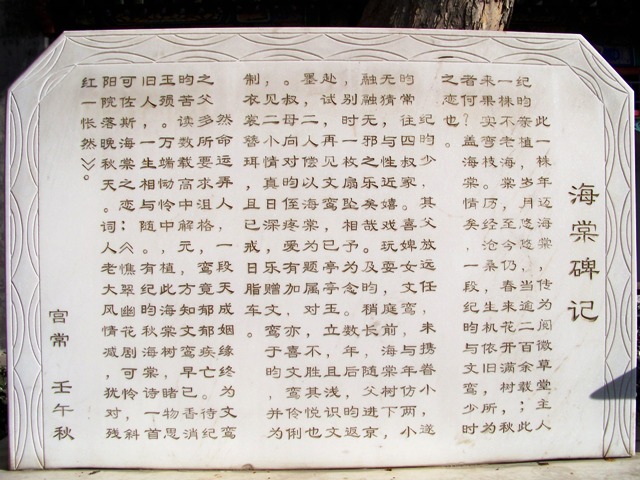 海棠碑记
此一株海棠,传为阅微草堂主人
纪昀亲植,岁月悠悠,当逾二百余载;此
一株不老海棠,至今仍春来花开满树,秋
来果实弯枝。历经沧桑,生机依旧,所为
者何?盖海棠情矣,一段纪昀与文鸾少时
之恋也。
纪昀少,其父放远任,未携眷小,遂
昀常往四叔家嬉玩。婢女文鸾,与昀仿,两小
无猜,性近嬉戏耍庭前树下,
融融无邪之乐哉。及稍长,随父进京,
别时,一枚扇坠相予为念。数年后,昀返
赴试,再见文鸾,已亭亭玉立,且浅识文
墨。二人偿以海棠为题属对,不胜悦也
。叔母向对昀侄疼爱有加,亦喜文鸾伶俐
,见小情真日深,乐赠文鸾于昀,并为
制衣裳簪珥,且已戒日脂车。
然命运弄人,一段天成姻缘终为文鸾
之父多所要求沮格,鸾竟郁郁疾亡。待纪
昀苦读数载高中解元,方知文鸾早已香消
玉殒。万端恸怜中,植此海棠树,睹物思
旧人,一生相恋与随。有纪昀秋海棠诗一首
可佐斯海棠之恋:《憔翠幽花剧可怜,斜
阳院落晚秋天。词人老大风情减,犹对残
红一怅然》。
宫常 壬午秋